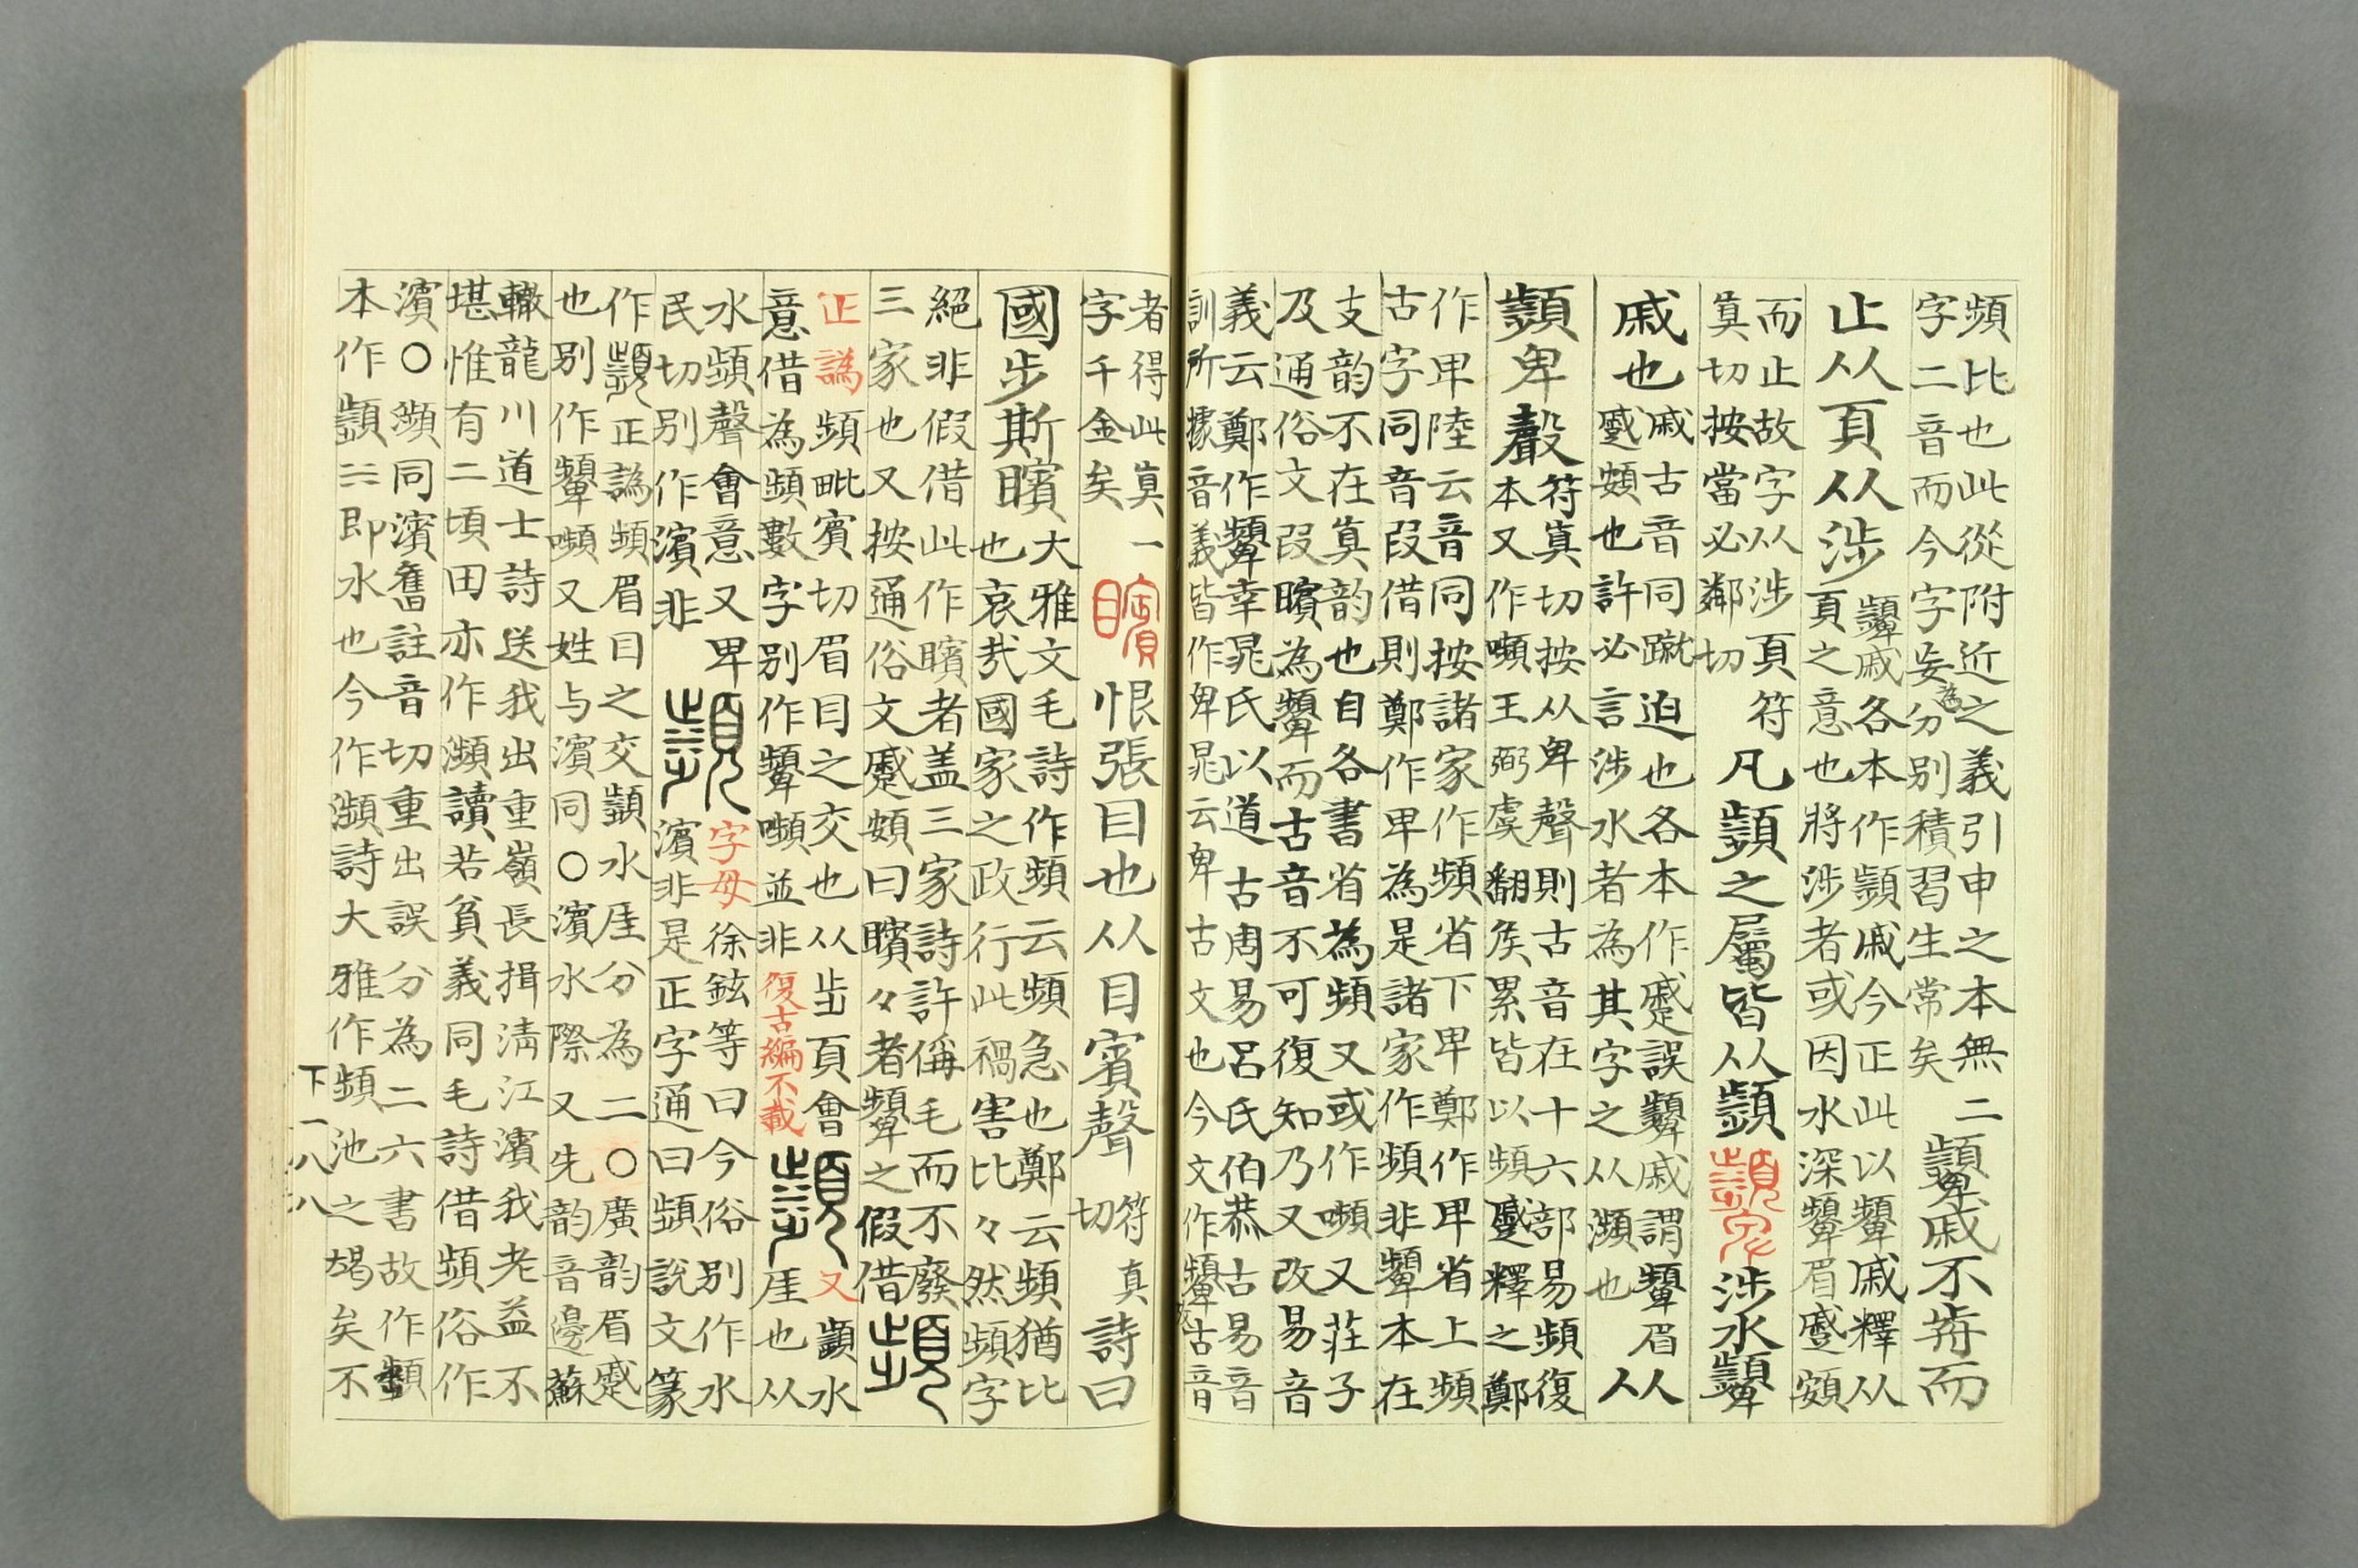 頻比也此從附近之義引申之本無二
字二音而今字妄為分別積習生常矣
顰戚不歬而
止从頁从涉
顰戚各本作顥戚今正此以顰戚釋从
頁之意也將涉者或因水深顰眉蹙頞
而止故字从涉頁符
眞切按當必鄰切
凡顥之屬皆从顥
涉水顰
戚也
戚古音同蹴迫也各本作蹙誤顰戚謂顰眉
蹙頞也許必言涉水者為其字之从瀕也
从
顥卑聲
符眞切按从卑聲則古音在十六部易頻復
本又作嚬王弼虞翻侯累皆以頻蹙釋之鄭
作卑陸云音同按諸家作頻省下卑鄭作卑省上頻
古字同音叚借則鄭作卑為是諸家作頻非顰本在
支韵不在眞韵也自各書省為頻又或作嚬又莊子
及通俗文叚矉為顰而古音不可復知乃又改易音
義云鄭作顰幸晁氏以道古周易呂氏伯恭古易音
訓所據音義皆作卑晁云卑古文也今文作顰古音
者得此眞一
字千金矣
矉恨張目也从目賓聲
符真
切
詩曰
國步斯矉
大雅文毛詩作頻云頻急也鄭云頻猶比
也哀㢤國家之政行此禍害比々然頻字
絕非假借此作矉者盖三家詩許偁毛而不廢
三家也又按通俗文蹙頞曰矉々者顰之假借
正譌
頻毗賓切眉目之交也从步頁會
意借為頻數字別作顰嚬並非
復古編不載
又
顥水
厓也从
水頻聲會意又卑
民切別作濱非
字母
徐鉉等曰今俗別作水
濱非是正字通曰頻說文篆
作顥正譌頻眉目之交顥水厓分為二〇廣韵眉蹙
也別作顰嚬又姓与濱同〇濱水際又先韵音邊蘇
轍龍川道士詩送我出重嶺長揖淸江濱我老益不
堪惟有二頃田亦作瀕讀若貧義同毛詩借頻俗作
濱〇瀕同濱舊註音切重出誤分為二六書故作顥
本作顥即水也今作瀕詩大雅作頻池之竭矣不
下一八八